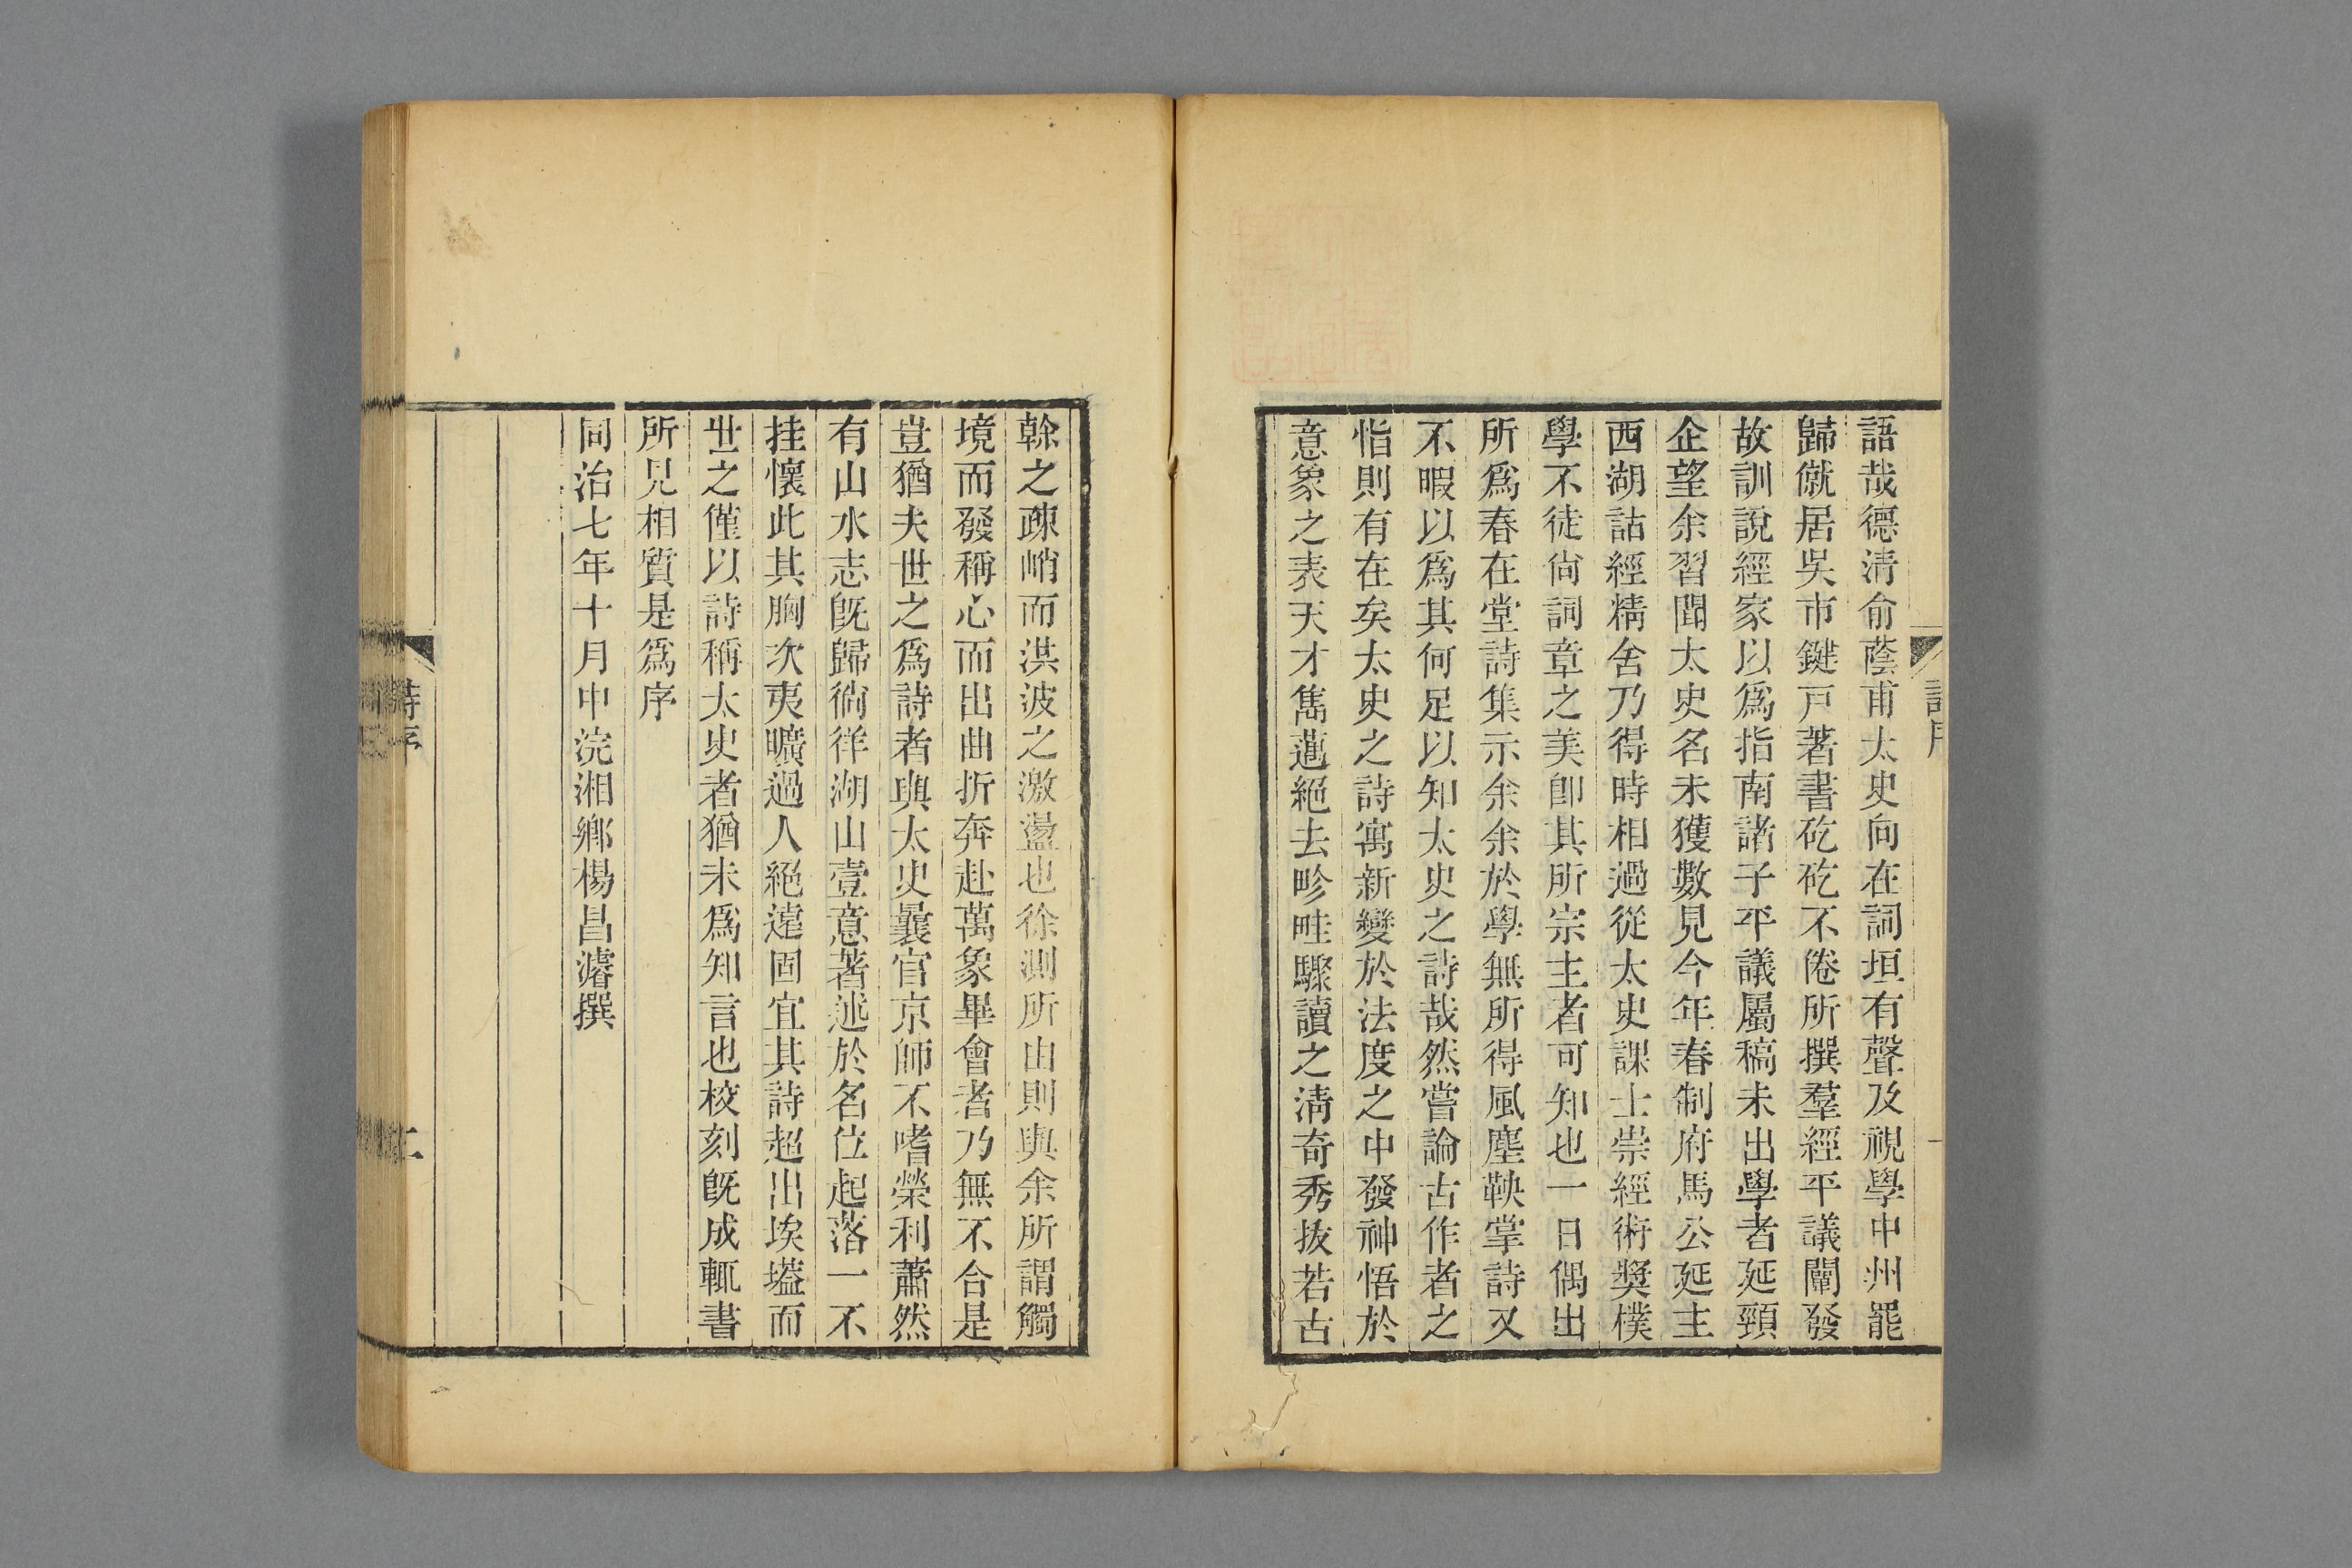 語哉德清俞蔭甫太史向在詞垣有聲及視學中州罷
歸僦居吳市鍵戸著書矻矻不倦所撰羣經平議闡發
故訓說經家以爲指南諸子平議屬稿未出學者延頸
企望余習聞太史名未獲數見今年春制府馬公延主
西湖詁經精舍乃得時相過從太史課士崇經術奬樸
學不徒尙詞章之美卽其所宗主者可知也一日偶出
所爲春在堂詩集示余余於學無所得風塵鞅掌詩又
不暇以爲其何足以知太史之詩哉然嘗論古作者之
恉則有在矣太史之詩寓新變於法度之中發神悟於
意象之表天才雋邁絕去畛畦驟讀之淸奇秀拔若古
榦之疎峭而洪波之激盪也徐測所由則與余所謂觸
境而發稱心而出曲折奔赴萬象畢會者乃無不合是
豈猶夫世之爲詩者與太史曩官京師不嗜榮利蕭然
有山水志旣歸徜徉湖山壹意著述於名位起落一不
挂懷此其胸次夷曠過人絕遠固宜其詩超出埃壒而
世之僅以詩稱太史者猶未爲知言也校刻旣成輒書
所見相質是爲序
同治七年十月中浣湘鄉楊昌濬撰
詩序
二